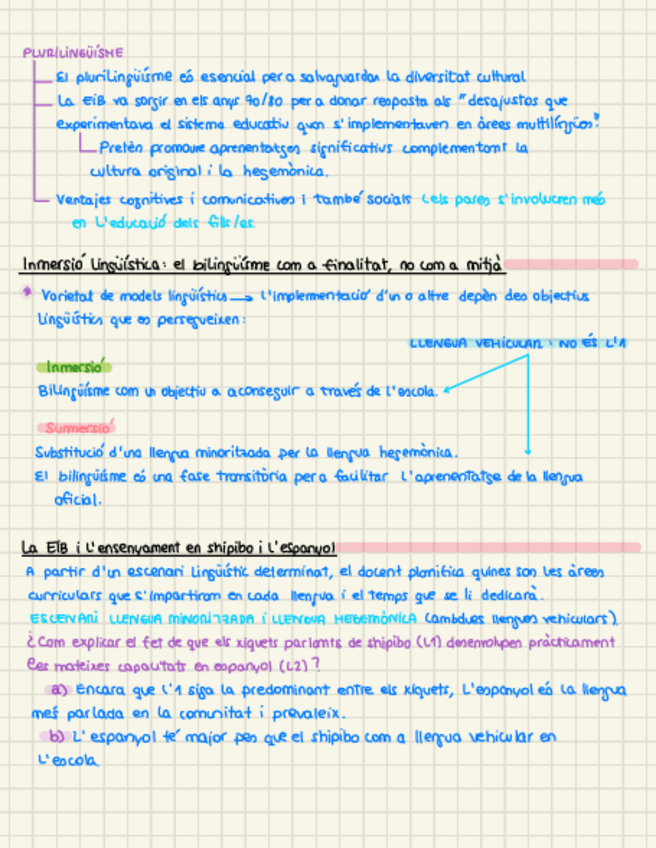 PLURILINGÜÍSME
El plurilingüisme és esencial per a salvaguardar la diversitat cultural
La EiB va sorgir en els anys 70/80 per a donar resposta als "desajustos que
experimentava el sistema educatiu quan s'implementaven en àrees multilíngües".
Pretén promoure aprenentatges significatius complementant la
cultura original i la hegemònica.
Ventajes cognitives i comunicatives i també socials (els pares s'involucren més
en l'educació dels fills/es.
Inmersió lingüística: el bilingüisme com a finalitat, no com a mitjà
* Varietat de models lingüístics → l'implementació d'un o altre depèn des objectius
lingüístics que es persegueixen:
LLENGUA VEHICULAR: NO ÉS L'1
Inmersió
Bilingüísme com un objectiu a aconseguir a través de l'escola.
Sumersió
Substitució d'una llengua minoritzada per la llengua hegemònica.
El bilingüísme és una fase transitòria per a facilitar l'aprenentatge de la llengua
oficial.
La EIB i l'ensenyament en shipibo i l'espanyol
A partir d'un escenari lingüístic determinat, el docent planifica quines son les àrees
curriculars que s'impartiran en cada llengua i el temps que se li dedicarà.
ESCENARI LLENGUA MINORITZADA I LLENGUA HEGEMÒNICA (ambdues llengues vehiculars).
¿Com explicar el fet de que els xiquets parlants de shipibo (L1) desenvolupen pràcticament
les mateixes capacitats en espanyol (L2)?
a) Encara que l'1 siga la predominant entre els xiquets, l'espanyol és la llengua
més parlada en la comunitat i prevaleix.
b) L'espanyol té major pes que el shipibo com a llengua vehicular en
l'escola.